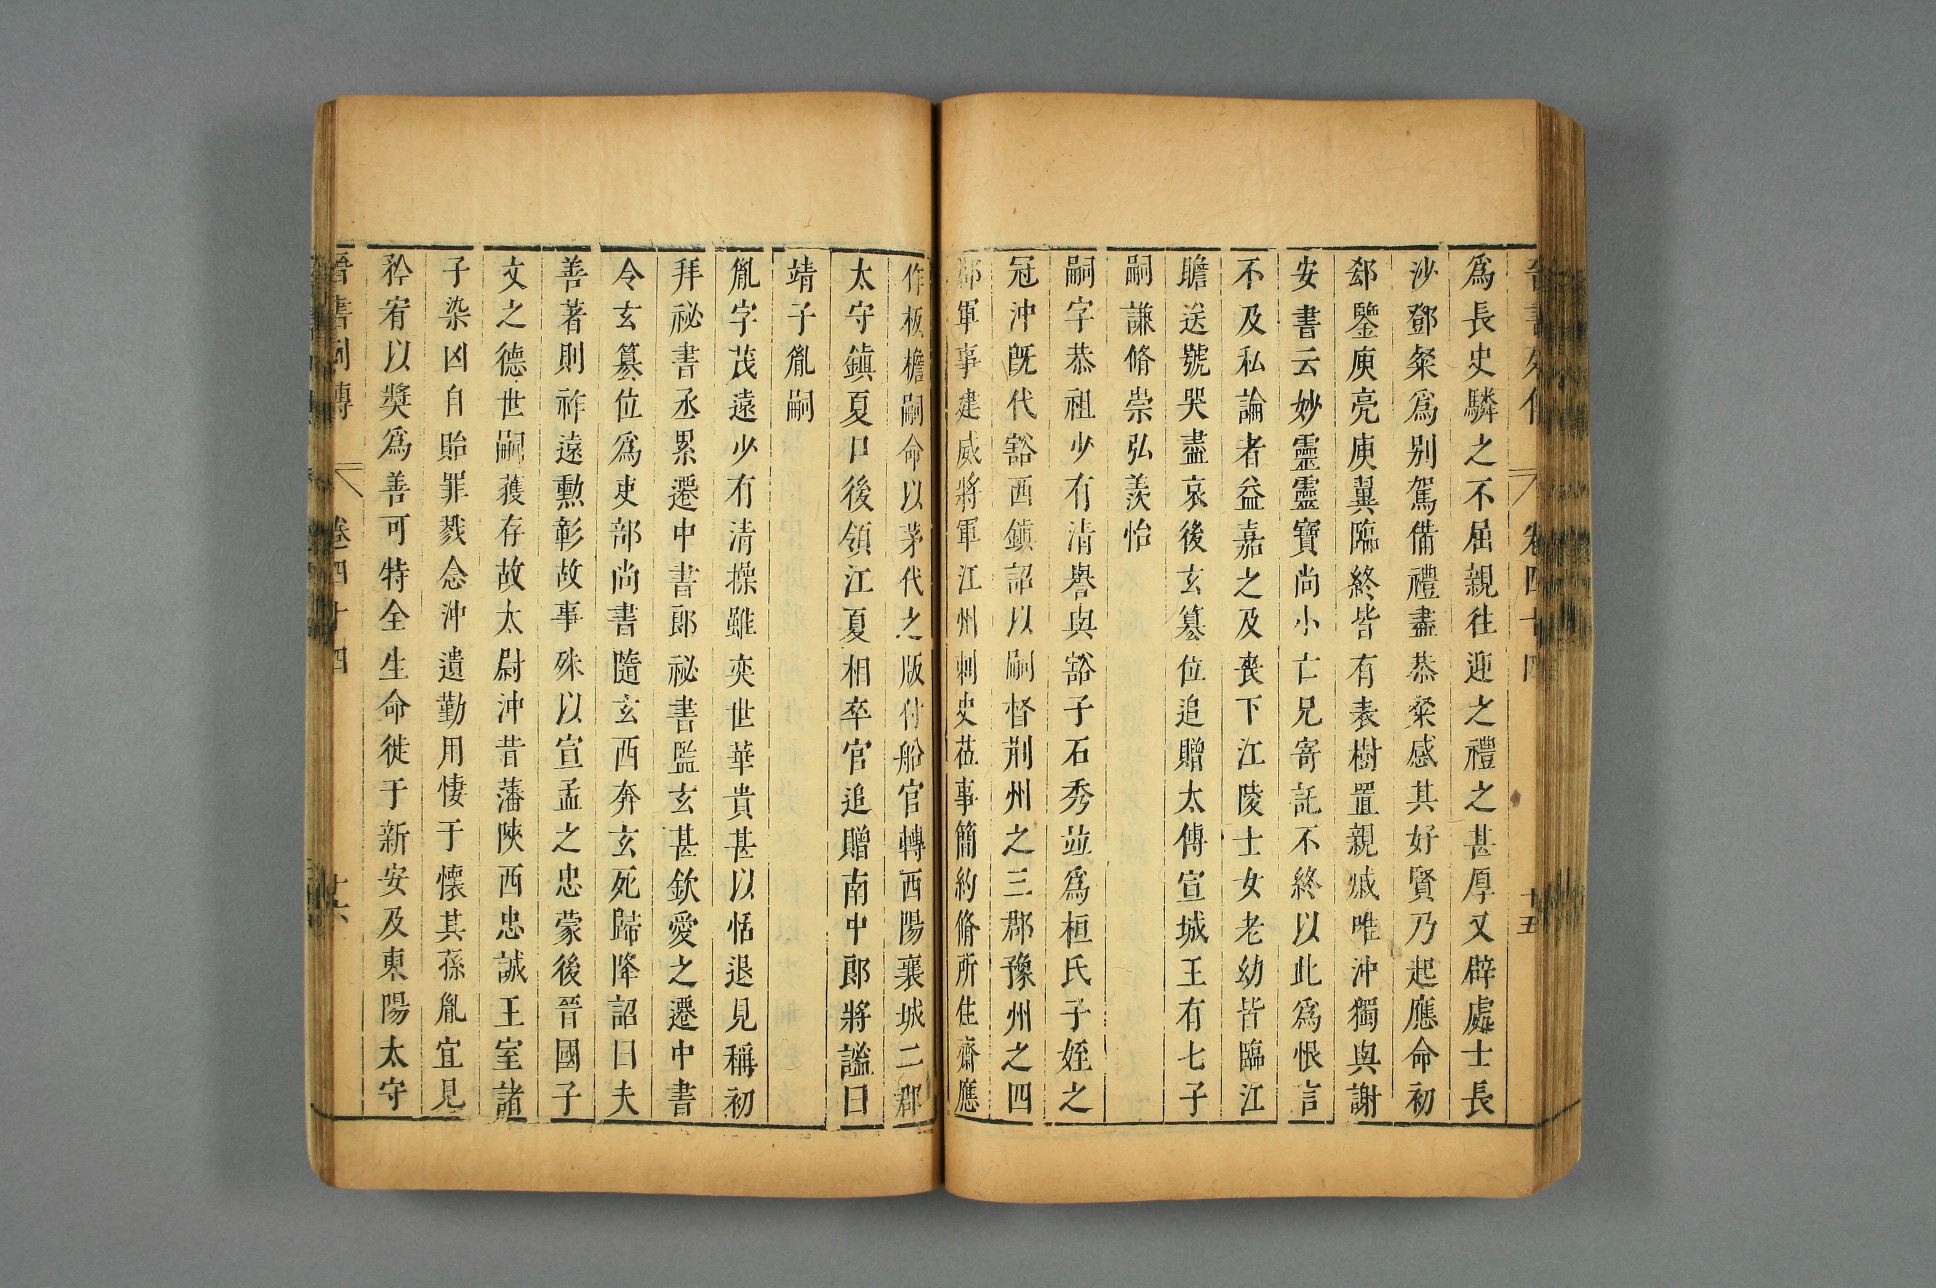 晉書列傳 卷四十四 十五
爲長史驎之不屈親往迎之禮之甚厚又辟處士長
沙鄧粲爲别駕備禮盡恭粲感其好賢乃起應命初
郄鑒庾亮庾翼臨終皆有表樹置親戚唯沖獨與謝
安書云妙靈靈寶尚小亡兄寄託不終以此爲恨言
不及私論者益嘉之及喪下江陵士女老幼皆臨江
瞻送號哭盡哀後玄篡位追贈太傅宣城王有七子
嗣謙脩崇弘羨怡
嗣字恭祖少有清譽與豁子石秀並爲桓氏子姪之
冠沖旣代豁西鎭詔以嗣督荆州之三郡豫州之四
郡軍事建威將軍江州刺史莅事簡約脩所住齋應
作板檐嗣命以茅代之版付船官轉西陽襄城二郡
太守鎭夏口後領江夏相卒官追贈南中郎將謚曰
靖子胤嗣
胤字茂遠少有清操雖奕世華貴甚以恬退見稱初
拜祕書丞累遷中書郎祕書監玄甚欽愛之遷中書
令玄簒位爲吏部尚書隨玄西奔玄死歸降詔曰夫
善著則祚遠勲彰故事殊以宣孟之忠蒙後晉國子
文之德世嗣獲存故太尉沖昔藩陝西忠誠王室諸
子染凶自貽罪戮念沖遺勤用悽于懷其孫胤宜見
矜宥以獎爲善可特全生命徙于新安及東陽太守
晉書列傳 卷四十四 十六